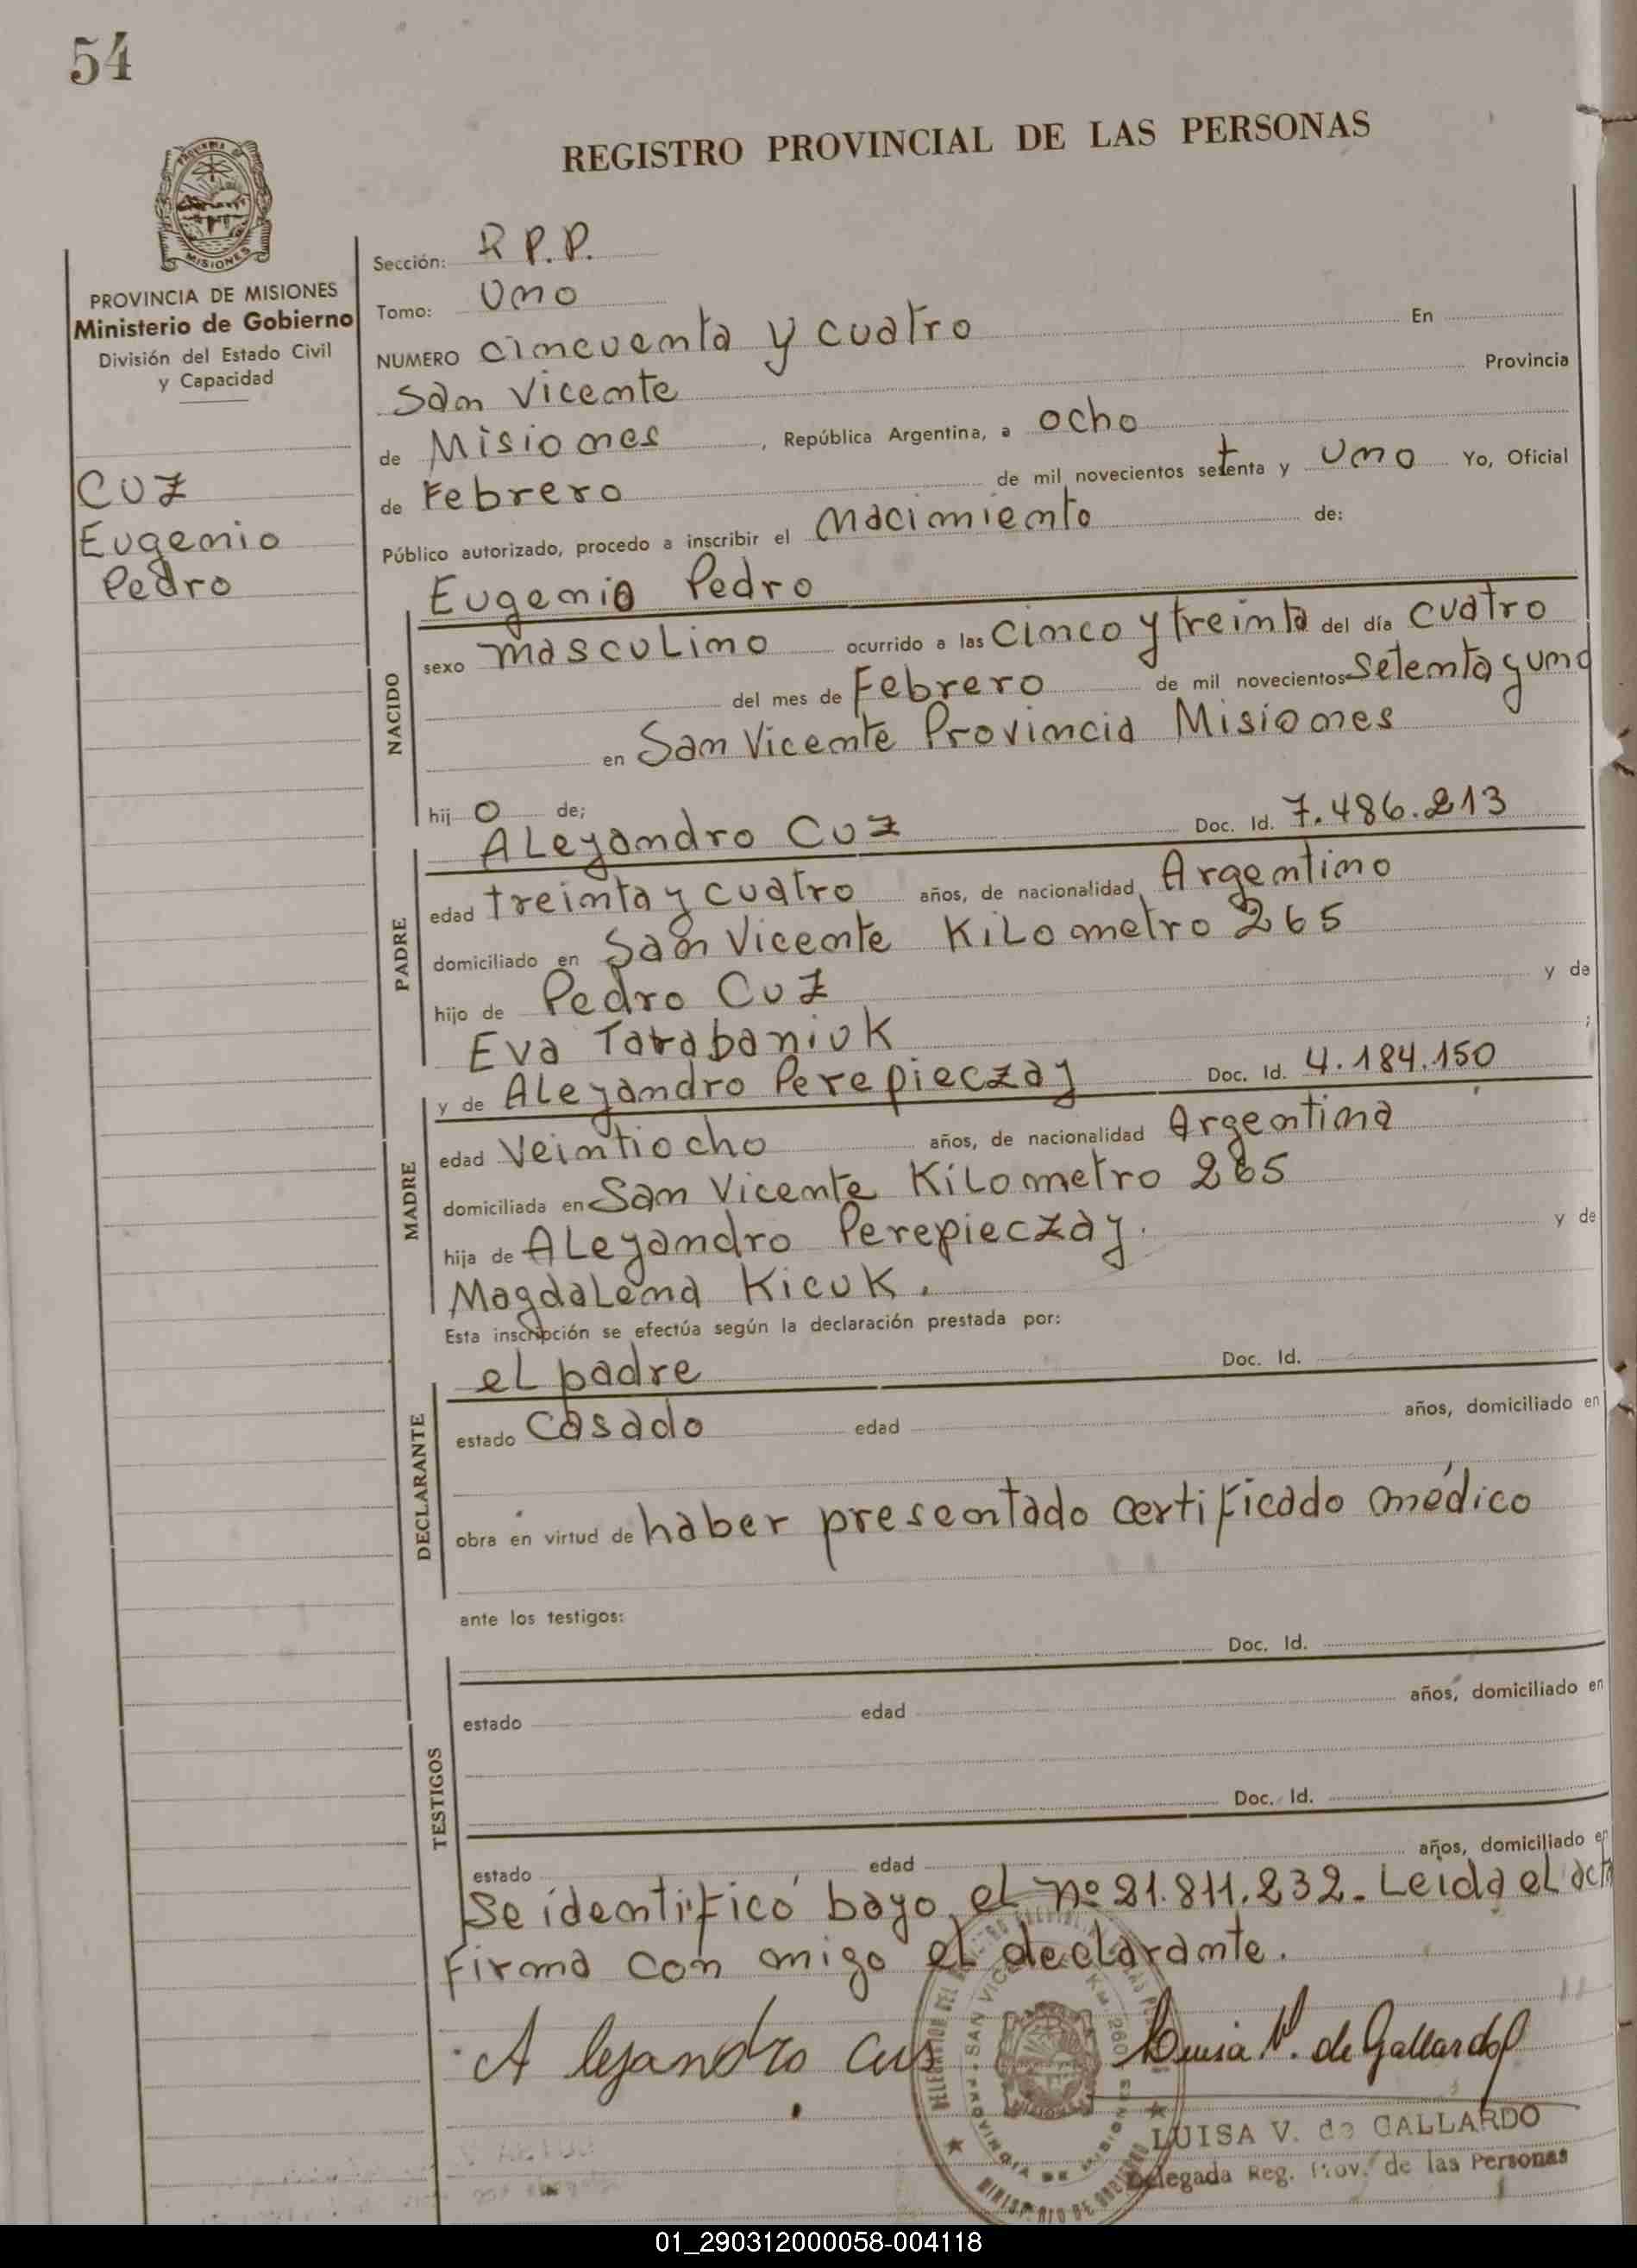 54
REGISTRO PROVINCIAL DE LAS PERSONAS
MISIONES
PROVINCIA DE MISIONES
Ministerio de Gobierno
División del Estado Civil
y Capacidad
CUZ
Eugenio
Pedro
Sección: R P.P.
Tomo: Uno
NUMERO cincuenta y cuatro En
San Vicente Provincia
de Misiones, República Argentina, a ocho
de Febrero de mil novecientos setenta y uno Yo, Oficial
Público autorizado, procedo a inscribir el nacimiento de:
Eugenio Pedro
NACIDO
sexo masculino ocurrido a las cinco y treinta del día cuatro
del mes de Febrero de mil novecientos setenta y uno
en San Vicente Provincia Misiones
hijo de;
Aleyandro Cuz Doc. Id. 7.486.213
PADRE
edad treinta y cuatro años, de nacionalidad Argentino
domiciliado en San Vicente Kilometro 265
hijo de Pedro Cuz y de
Eva Tarabaniuk ;
y de Aleyandro Perepieczay Doc. Id. 4.184.150
MADRE
edad Veintiocho años, de nacionalidad Argentina
domiciliada en San Vicente Kilometro 265
hija de Aleyandro Perepieczay. y de
Magdalena Kicuk.
Esta inscripción se efectúa según la declaración prestada por:
el padre Doc. Id.
DECLARANTE
estado casado edad años, domiciliado en
obra en virtud de haber presentado certificado médico
ante los testigos:
Doc. Id.
TESTIGOS
estado edad años, domiciliado en
Doc. Id.
estado edad años, domiciliado en
Se identificó bayo el nº 21.811.232. Leida el acta
firma con migo el declarante.
Alejandro Cus
Luisa V. de Gallardo
SAN VICENTE KM 260
PROVINCIA DE MISIONES
MINISTERIO DE GOBIERNO
LUISA V. de GALLARDO
Delegada Reg. Prov. de las Personas
01_290312000058-004118